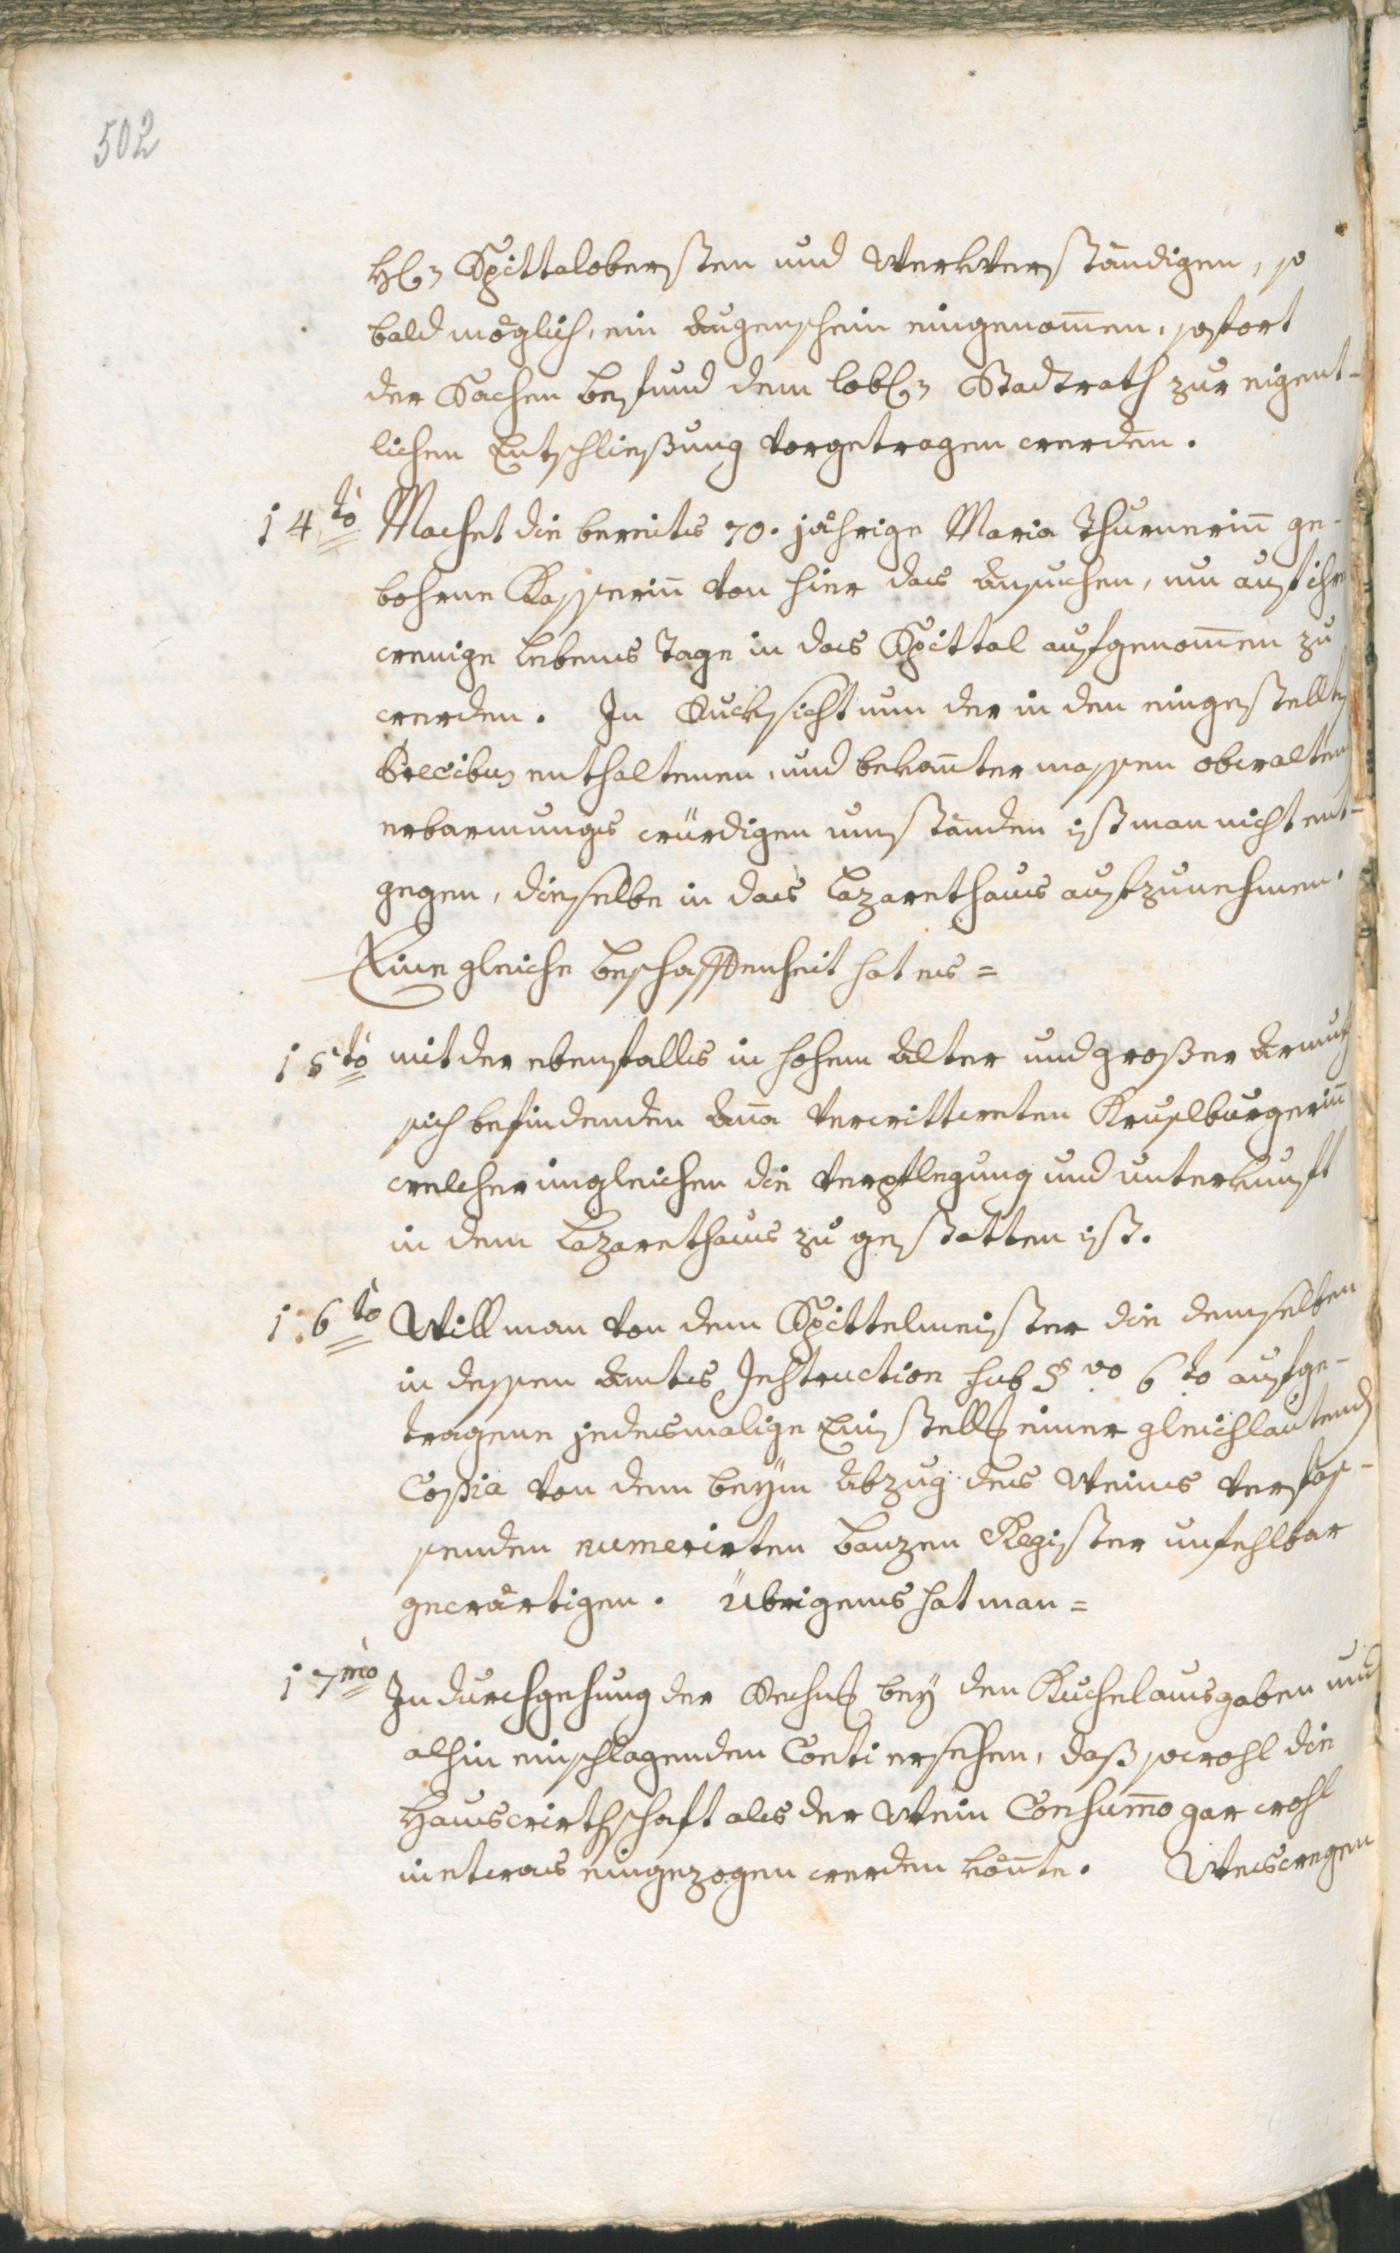 502
H(er)n Spittalobersten und Werkverständigen, so
bald möglich, ein Augenschein eingenom̄en, sofort
der Sachen Befund dem lobl(iche)n Stadtrath zur eigent-
lichen Entschließung vorgetragen werden.
14.to Machet die bereits 70. jährige Maria Thurnerin̄ ge-
bohrne Kasserin̄ von hier das Ansuchen, um auf ihre
wenige Lebens Tage in das Spittal aufgenom̄en zu
werden. In Rucksicht nun der in den eingestellten
Precibus enthaltenen, und bekan̄ter massen obwalten
erbarmungs würdigen umständen ist man nicht ent-
gegen, dieselbe in das Lazarethaus aufzunehmen.
Eine gleiche Beschaffenheit hat es =
15to mit der ebenfalls in hohem Alter und großer Armuth
sich befindenden An̄a verwittweten Kruslburgerin̄
welcher ingleichen die Verpflegung und unterkunft
in dem Lazarethaus zu gestatten ist.
16to Will man von dem Spittelmeister die demselben
in dessen Amts Instruction sub § vo 6to aufge-
tragene jedesmalige Einstellung einer gleichlautenden
Copia von dem beym Abzug des Weins verfas-
senden numerirten Banzen Register unfehlbar
gewärtigen. Übrigens hat man =
17mo In durchgehung der Rechnung bey den Kuchelausgaben und
alhin einschlagenden Conti ersehen, daß sowohl die
Hauswirthschaft als der Wein Consum̄o gar wohl
in etwas eingezogen werden kön̄te. Weswegen